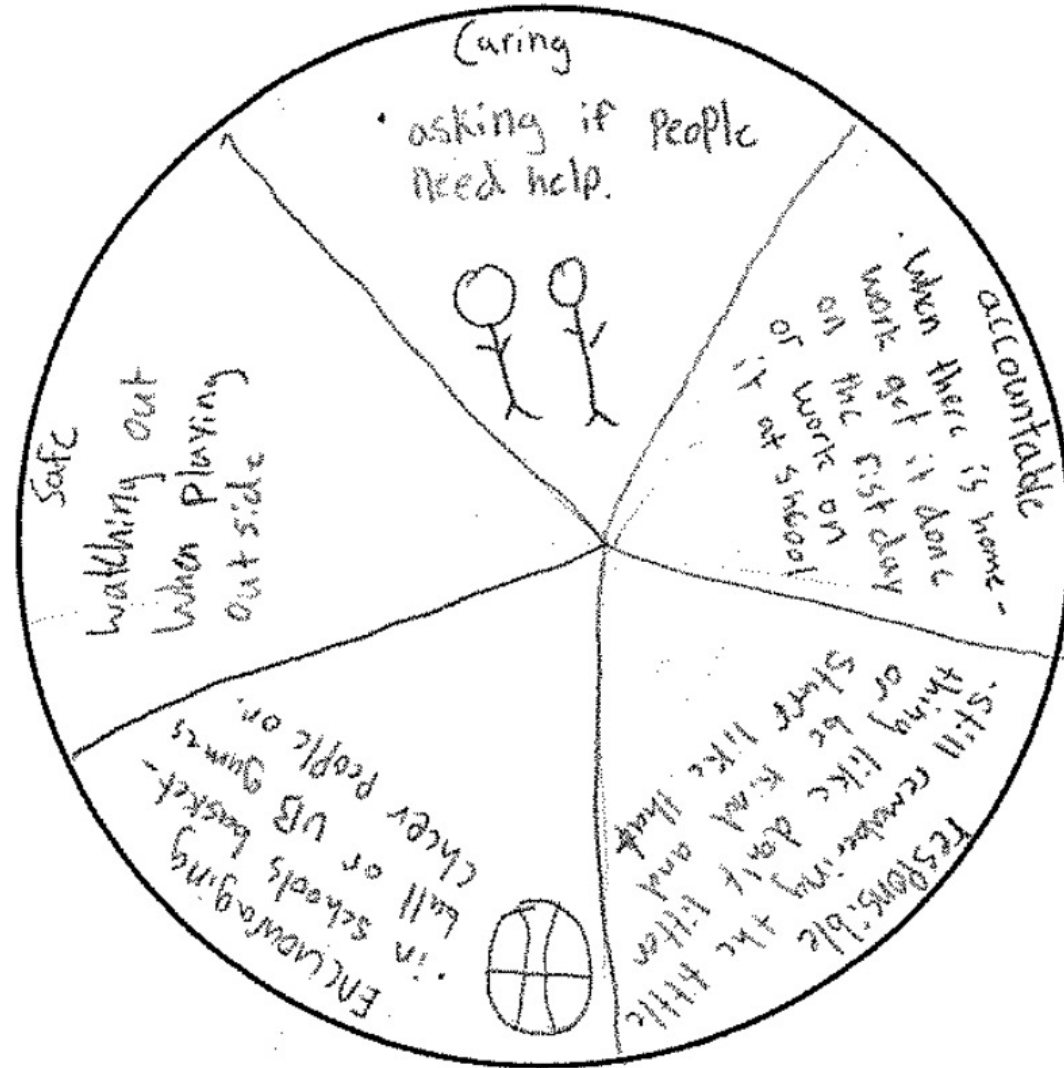 Caring
· asking if people
need help.
accountable
· when there is home-
work get it done
on the first day
or work on
it at shcool
responsible
· still remebering the little
thing like don't litter
or be kind and
stuff like that
Encuouraging
· in schools basket-
ball or VB games
cheer people on.
Safe
watching out
when playing
out side